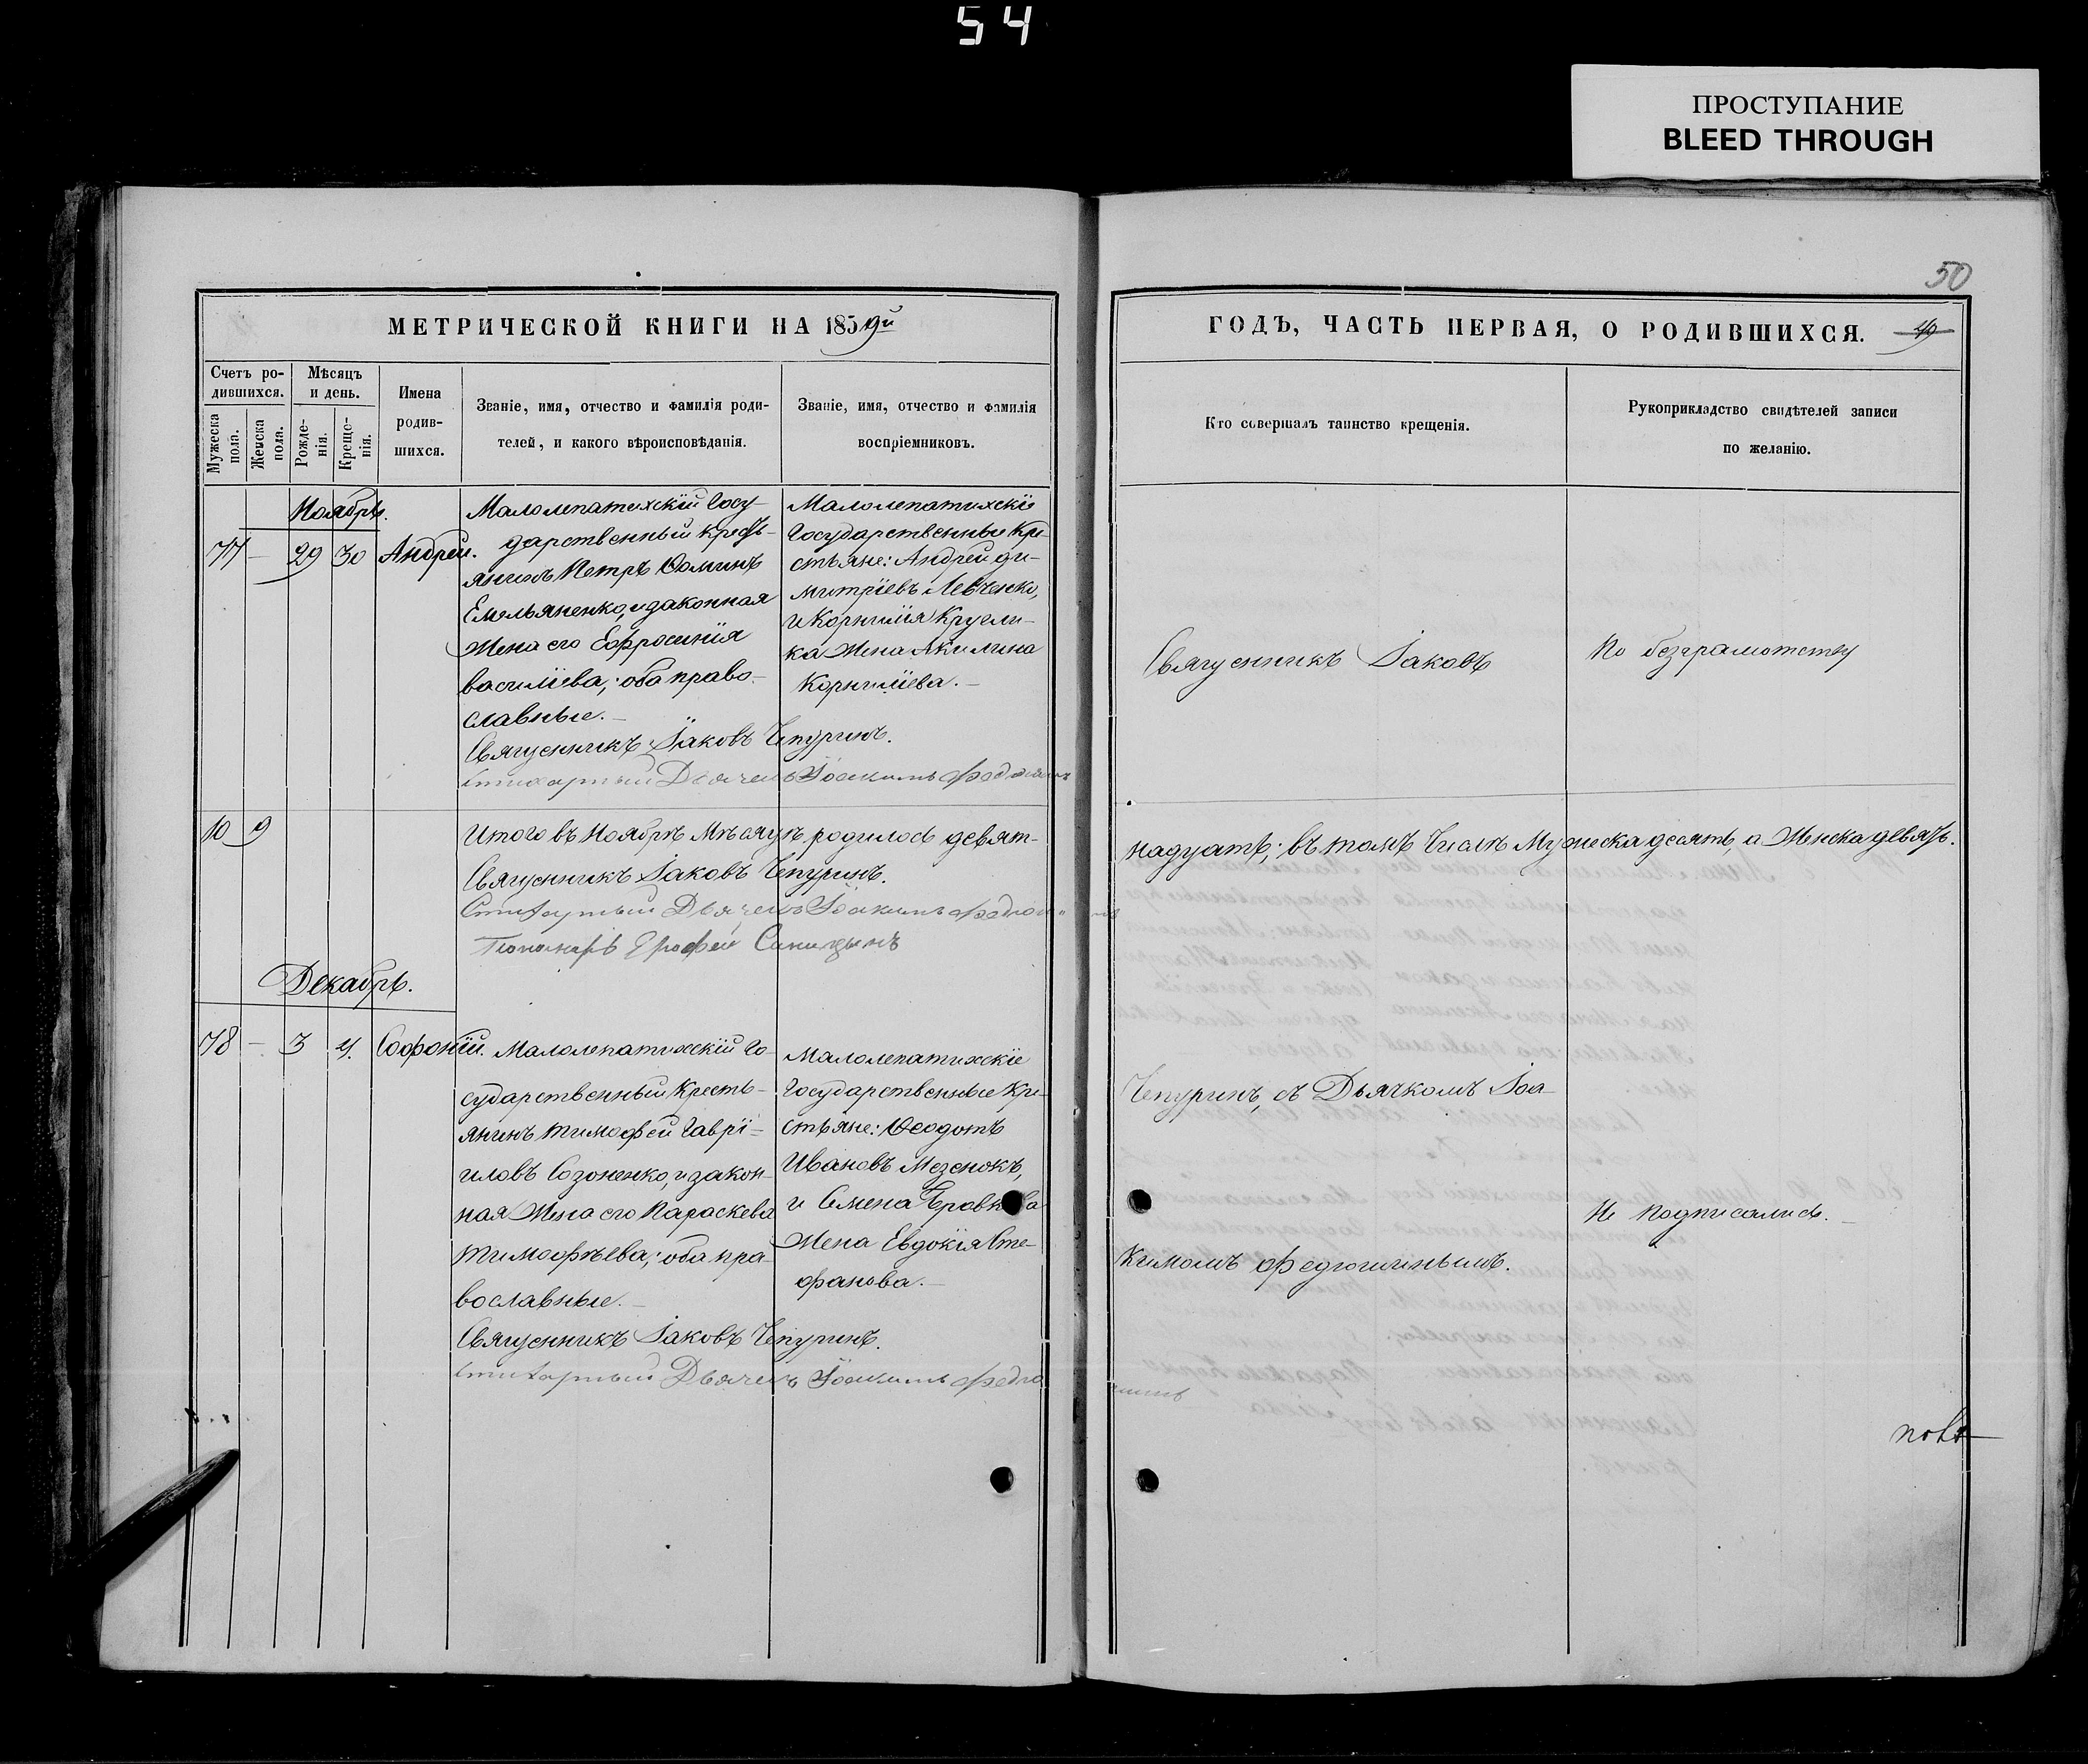 54
ПРОСТУПАНИЕ
BLEED THROUGH
50
МЕТРИЧЕСКОЙ КНИГИ НА 1859й
ГОДЪ, ЧАСТЬ ПЕРВАЯ, О РОДИВШИХСЯ. 49
Счетъ ро-
дившихся.
Мужеска
пола.
Женска
пола.
Мѣсяцъ
и день.
Рожде-
нія.
Креще-
нія.
Имена
родив-
шихся.
Званіе, имя, отчество и фамилія роди-
телей, и какого вѣроисповѣданія.
Званіе, имя, отчество и фамилія
воспріемниковъ.
Кто совершалъ таинство крещенія.
Рукоприкладство свидѣтелей записи
по желанію.
Ноябрь.
77 — 29 30 Андрей.
Малолепатихскій Госу-
дарственный кресть-
янинъ Петръ Ѳоминъ
Емельяненко, и законная
Жена его Ефросинія
василіева; оба право-
славные.—
Священникъ Іаковъ Чепуринъ.
Стихарный Дьячекъ Іоакимъ
Малолепатихскіе
Государственные Кре-
стьяне: Андрей Ди-
митріевъ Левченко,
и Корнилія Кругли-
ка Жена Акилина
Корниліева.—
Священникъ Іаковъ
По безграмотству
10 9
Итого въ Ноябрѣ Мѣсяцѣ родилось девят-
надцать; въ томъ Числѣ Мужеска десять, а Женска девять.
Священникъ Іаковъ Чепуринъ.
Стихарный Дьячекъ Іоакимъ
Пономарь Ерофей Синицынъ
Декабрь.
78 — 3 4. Софроній.
Малолепатихскій Го-
сударственный Кресть-
янинъ Тимофей Гаврі-
иловъ Созоненко, и закон-
ная Жена его Параскева
Тимофѣева; оба пра-
вославные.—
Священникъ Іаковъ Чепуринъ.
Стихарный Дьячекъ Іоакимъ Федю
шинъ
Малолепатихскіе
Государственные Кре-
стьяне: Ѳеодотъ
Ивановъ Мезенокъ,
и Семена
Жена Евдокія Сте-
фанова.—
Чепуринъ, съ Дьячкомъ Іоа-
кимомъ Федюшинымъ.
Не подписались.—